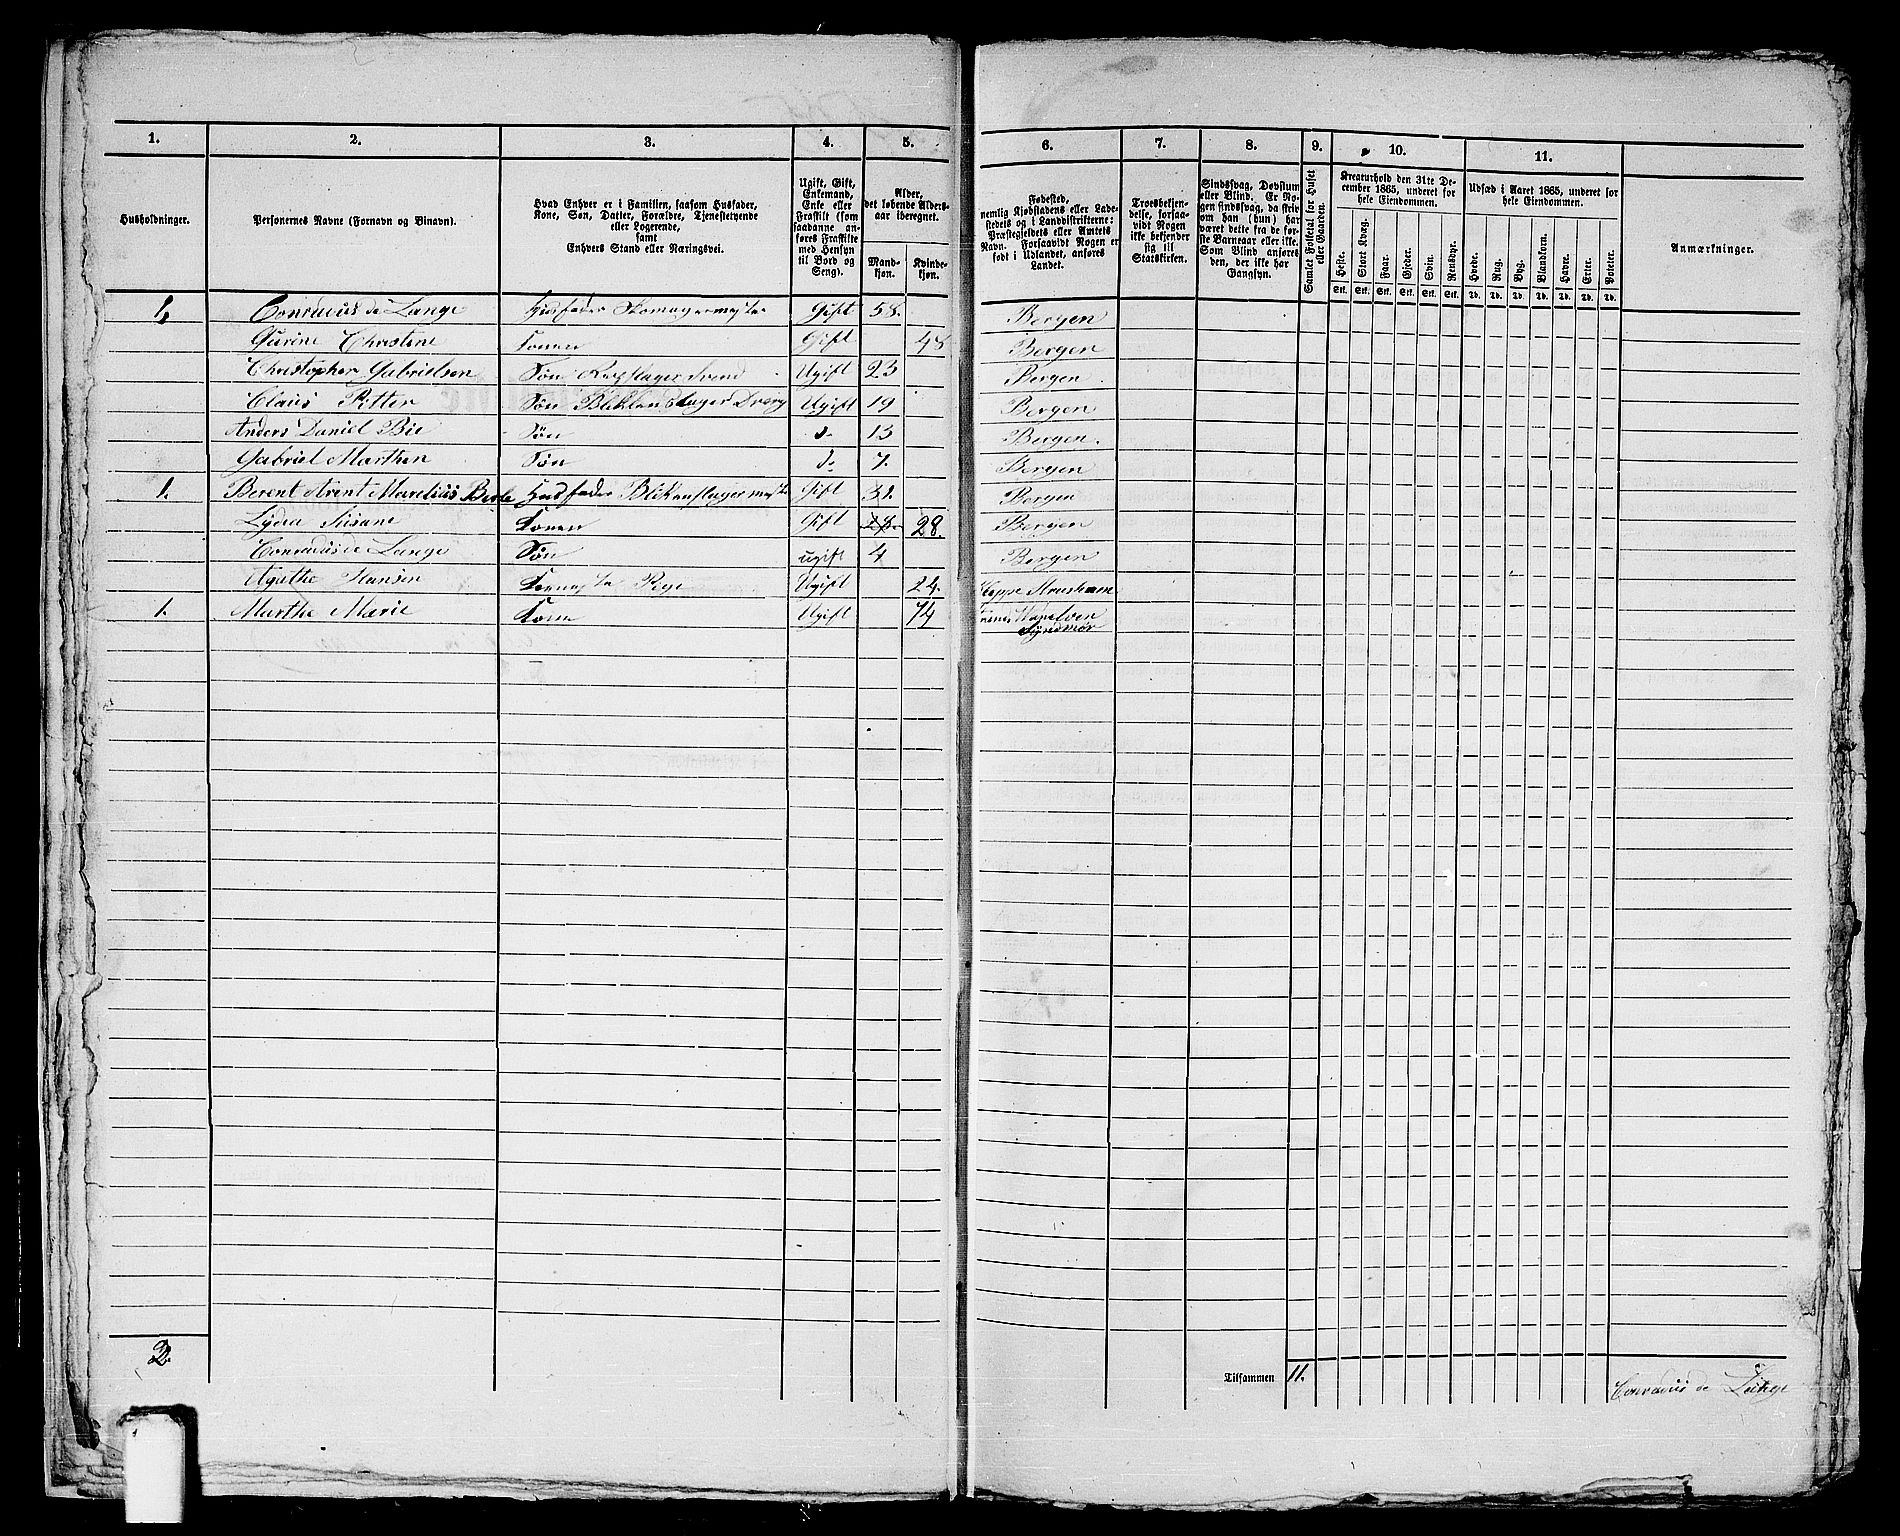 1. 2. 3. 4. 5. 6. 7. 8. 9. 10. 11.
Husholdninger.
Personernes Navne (Fornavn og Binavn).
Hvad Enhver er i Familien, saasom Husfader,
Kone, Søn, Datter, Forældre, Tjenestetyende
eller Logerende,
samt
Enhvers Stand eller Næringsvei.
Ugift, Gift,
Enkemand,
Enke eller
Fraskilt (som
saadanne an-
føres Fraskilte
med Hensyn
til Bord og
Seng).
Alder,
det løbende Alders-
aar iberegnet.
Mand-
kjøn.
Kvinde-
kjøn.
Fødested,
nemlig Kjøbstadens eller Lade-
stedets og i Landdistrikterne:
Præstegjeldets eller Amtets
Navn. Forsaavidt Nogen er
født i Udlandet, anføres
Landet.
Troesbekjen-
delse, forsaa-
vidt Nogen
ikke bekjender
sig til
Statskirken.
Sindssvag, Døvstum
eller Blind. Er No-
gen sindssvag, da skriv
om han (hun) har
været dette fra de før-
ste Barneaar eller ikke.
Som Blind anføres
den, der ikke har
Gangsyn.
Samlet Folketal for Huset
eller Gaarden.
Kreaturhold den 31te De-
cember 1865, underet for
hele Eiendommen.
Heste. Stort Kvæg. Faar. Gjeder. Svin. Rensdyr.
Stk. Stk. Stk. Stk. Stk. Stk.
Udsæd i Aaret 1865, underet for
hele Eiendommen.
Hvede. Rug. Byg. Blandkorn. Havre. Erter. Poteter.
Td. Td. Td. Td. Td. Td. Td.
Anmærkninger.
1. Conradus de Lange Husfader Skomagermester Gift 58. Bergen
Gurine Christine Konen Gift 48 Bergen
Christopher Gabrielsen Søn Ugift 23 Bergen
Claus Petter Søn Ugift 19 Bergen
Anders Daniel Bie Søn d. 13 Bergen.
Gabriel Marthen Søn d. 7. Bergen
1. Berent Arent Marelius Husfader Gift 31. Bergen
Lydia Susane Konen Gift 28. Bergen
Conradus de Lange Søn ugift 4 Bergen
Agethe Hansen Ugift 24.
1. Marthe Marie Kone Ugift 74
Syndmør
2.
Tilsammen 11.
Conradus de Lange